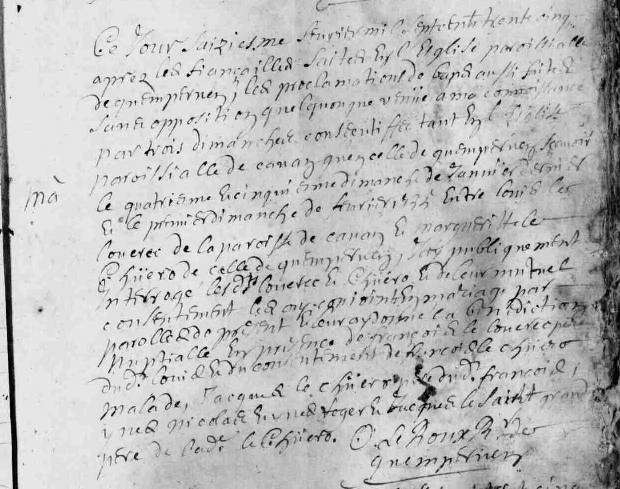 Ce jour saiziesme feuvrier mil sept cents trente cinq
apres les fiançailles faites en l'Eglise paroissialle
de quemperven, les proclamations de bans aussi faites
sans opposition quelquonque venüe a ma connoissance
par trois dimanches consecutiffs tant en l'Eglise
paroissialle de cavan qu'en celle de quemperven sçavoir
le quatriesme et cinquiesme dimanche de janvier dernier
et le premier dimanche de feuvrier entre louis le
ma
louerec de la paroisse de cavan et margueritte le
Chüero de celle de quemperven, les publiquement
interrogé lesdts louerec et Chüero et de leur mutuel
consentement les conjoint en mariage par
parolles de present et leur ay donné la benediction
nuptialle en presence de françois le louerec pere
dudt louis et du consentement de françois le Chüero
malade, jacques le Chüero dudt françois,
yves nicolas et yves jacques le saint grand
pere de ladte le Chüero. le Roux
quemperven